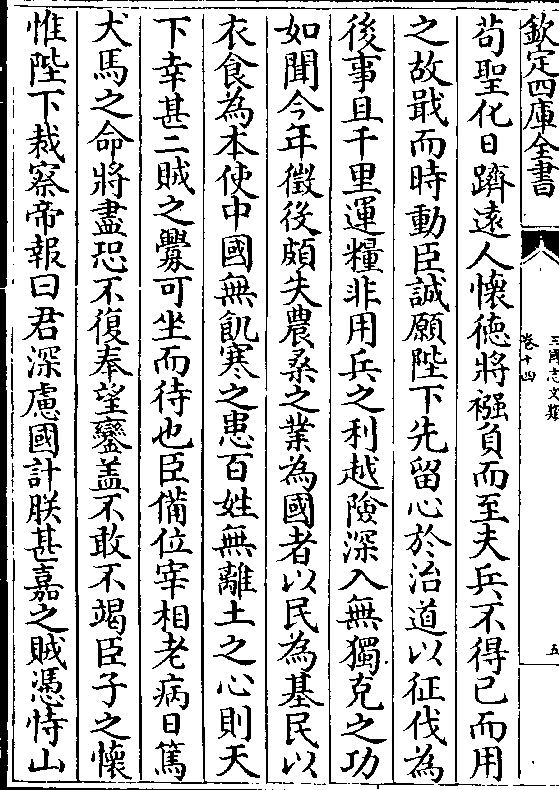 欽定四庫全書
三國志文類
卷十四
五
苟聖化日躋遠人懷德將襁負而至夫兵不得已而用
之故戢而時動臣誠願陛下先留心於治道以征伐為
後事且千里運糧非用兵之利越險深入無獨克之功
如聞今年徵役頗失農桑之業為國者以民為基民以
衣食為本使中國無飢寒之患百姓無離土之心則天
下幸甚二賊之釁可坐而待也臣備位宰相老病日篤
犬馬之命將盡恐不復奉望鑾盖不敢不竭臣子之懷
惟陛下裁察帝報曰君深慮國計朕甚嘉之賊憑恃山